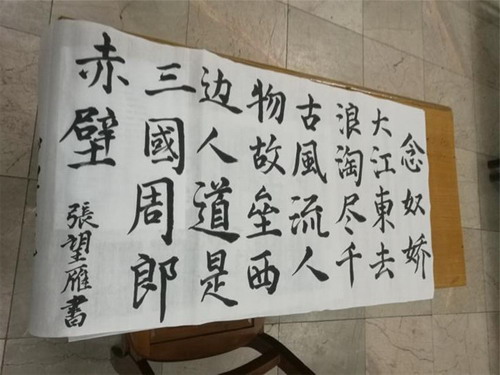 念奴娇
大江東去
浪淘尽千
古風流人
物故垒西
边人道是
三國周郎
赤壁
張望雁書